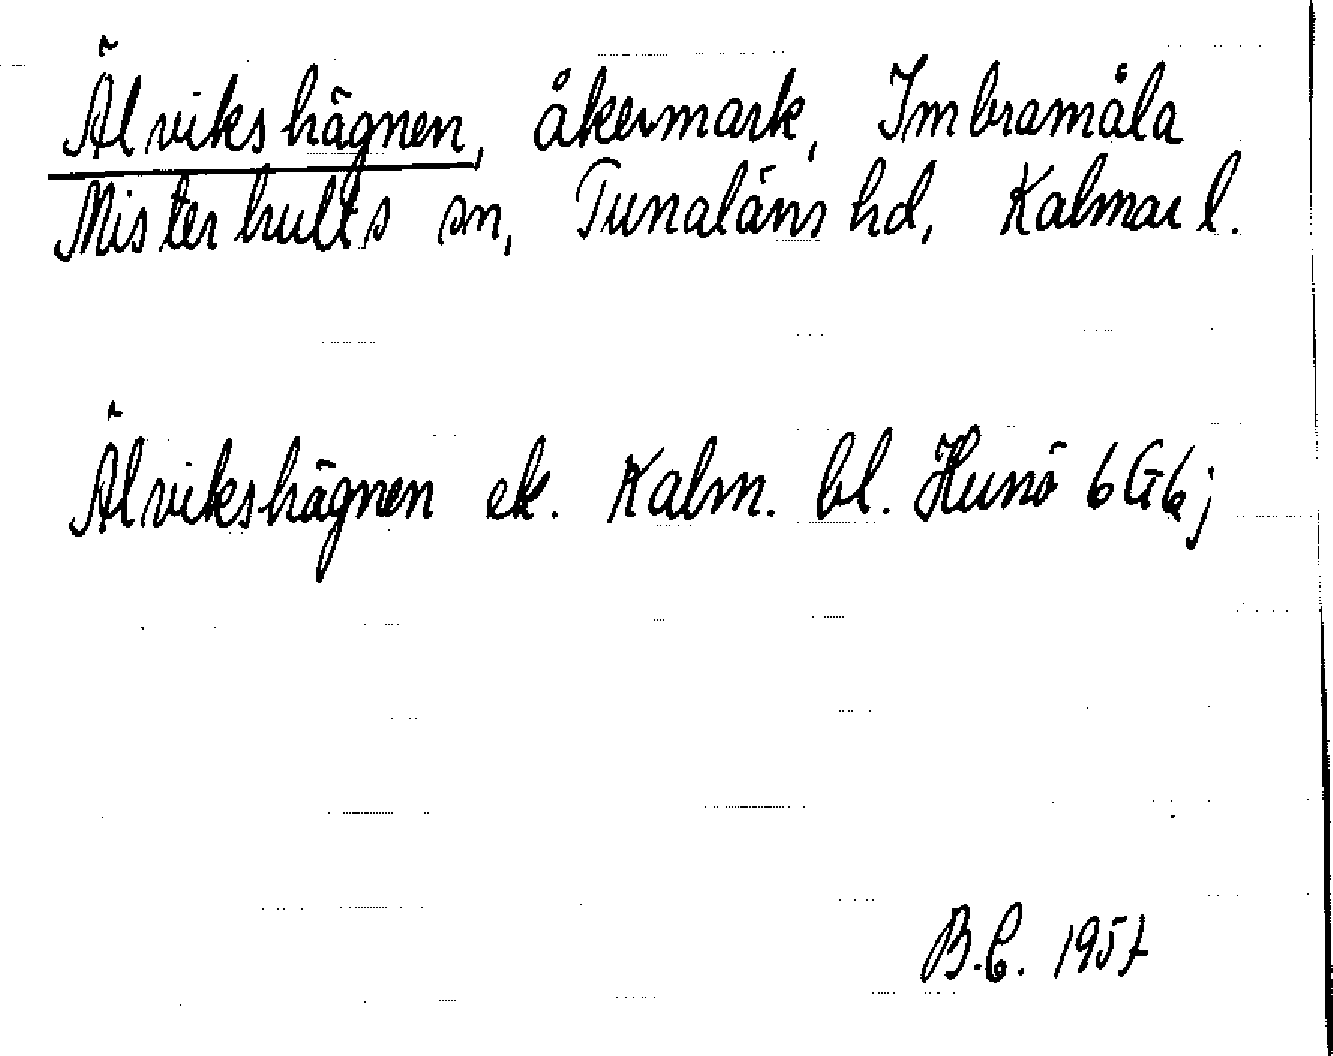 Älvikshägnen, åkermark, Imbramåla
Misterhults sn, Tunaläns hd, Kalmar l.
Älvikshägnen ek. Kalm. bl. Hunö 6G6j
B.E. 1957